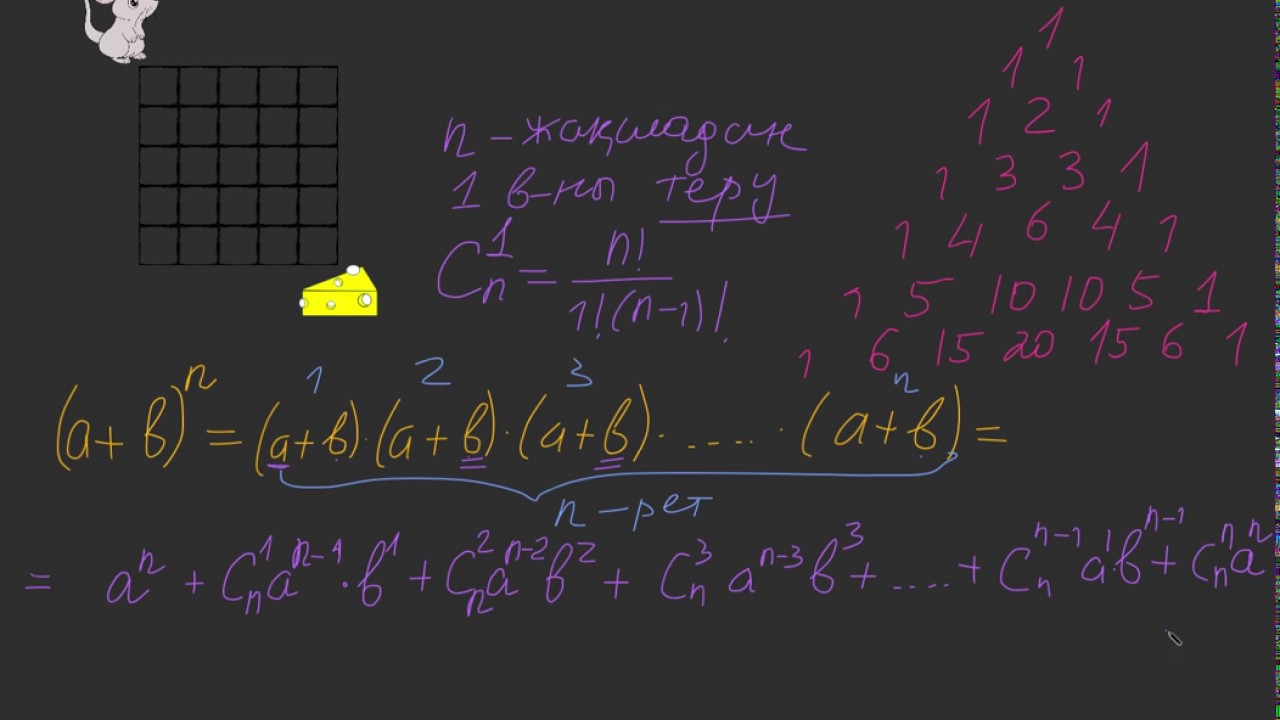 n – жақшадан
1 в-ны теру
C_n^1 = n! / 1!(n-1)!
1
1 1
1 2 1
1 3 3 1
1 4 6 4 1
1 5 10 10 5 1
1 6 15 20 15 6 1
1 2 3 n
(a+в)^n = (a+в)·(a+в)·(a+в)· ..... ·(a+в) =
n – рет
= a^n + C_n^1 a^{n-1}·в^1 + C_n^2 a^{n-2} в^2 + C_n^3 a^{n-3} в^3 + ..... + C_n^{n-1} a^1 в^{n-1} + C_n^n a^n